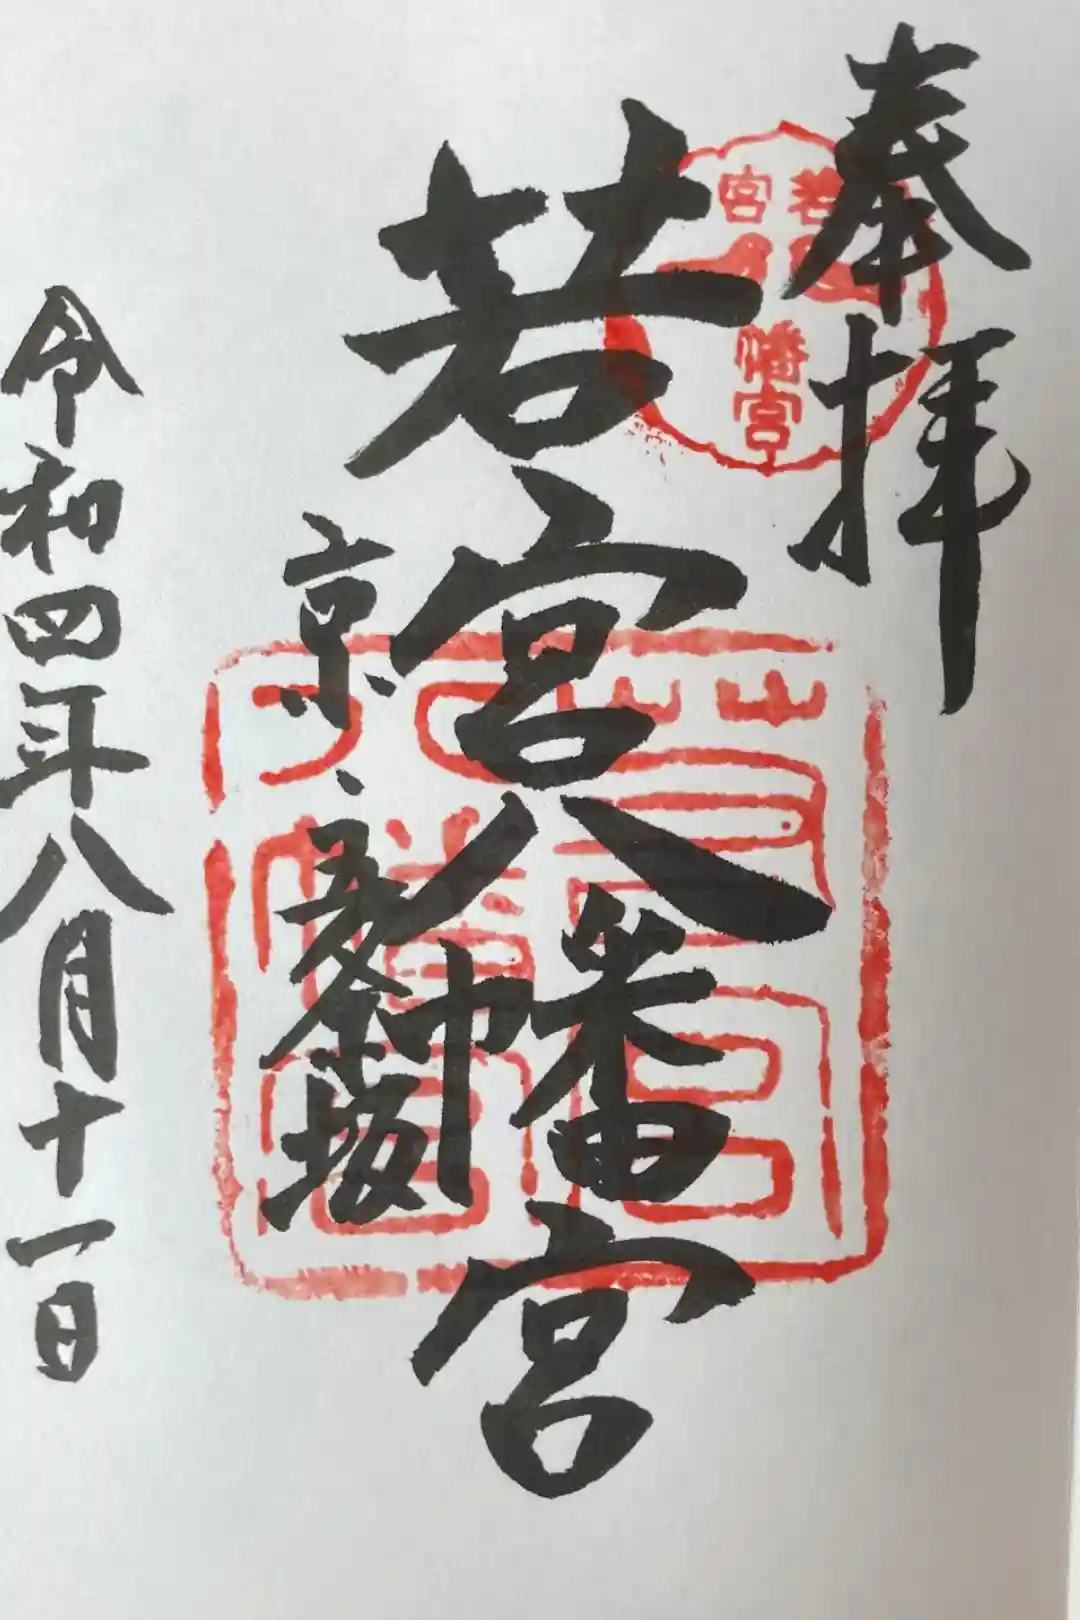 奉拝
若宮八幡宮
京・五条坂
令和四年八月十一日
若宮
八幡宮